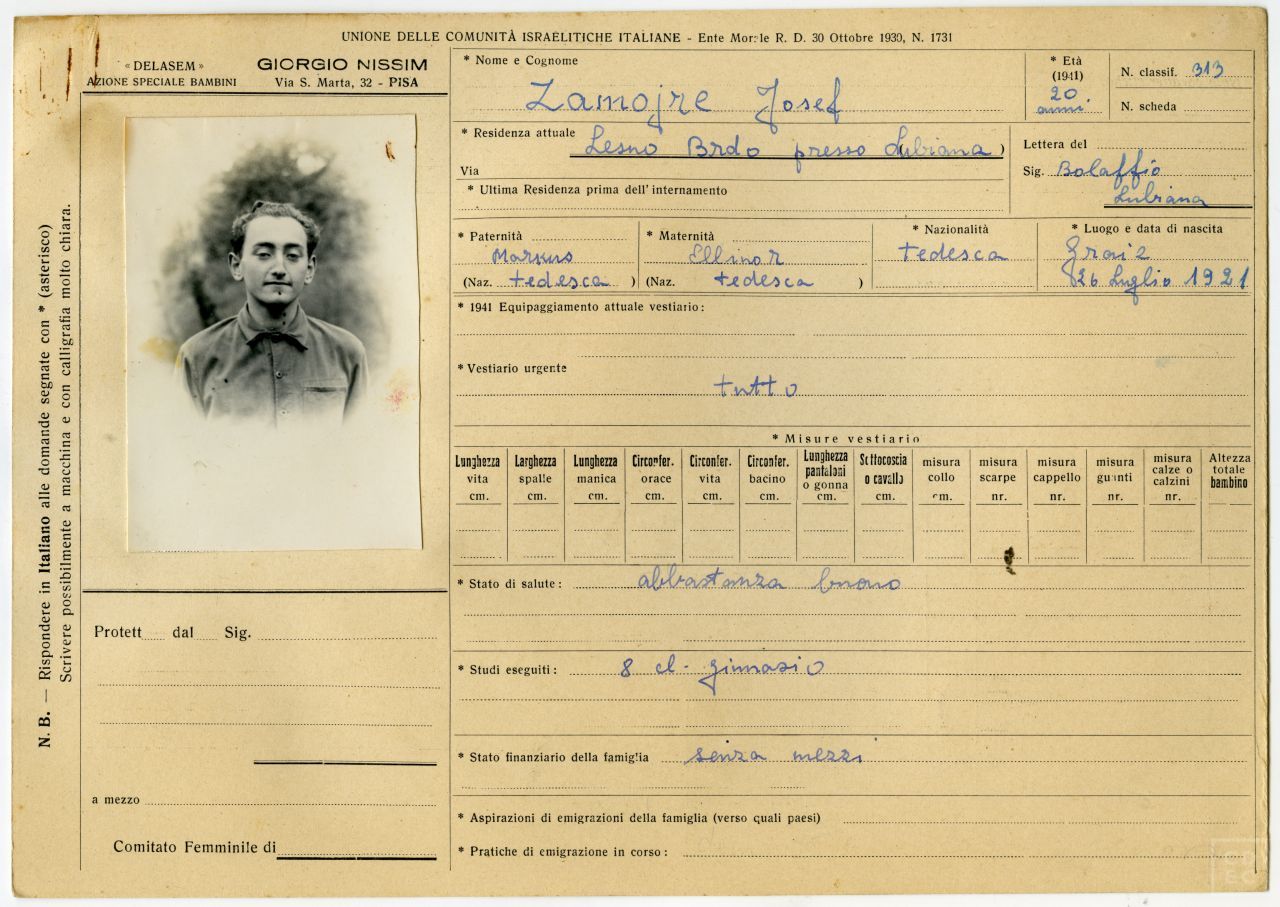 UNIONE DELLE COMUNITÀ ISRAELITICHE ITALIANE - Ente Morale R. D. 30 Ottobre 1930, N. 1731
« DELASEM »
AZIONE SPECIALE BAMBINI
GIORGIO NISSIM
Via S. Marta, 32 - PISA
N. B. — Rispondere in Italiano alle domande segnate con * (asterisco)
Scrivere possibilmente a macchina e con calligrafia molto chiara.
* Nome e Cognome
Zamojre Josef
* Età
(1941)
20
anni
N. classif. 313
N. scheda
* Residenza attuale Lesno Brdo presso Lubiana )
Via
* Ultima Residenza prima dell'internamento
Lettera del
Sig. Bolaffio
Lubiana
* Paternità
Markus
(Naz. tedesca )
* Maternità
Ellinor
(Naz. tedesca )
* Nazionalità
tedesca
* Luogo e data di nascita
26 Luglio 1921
* 1941 Equipaggiamento attuale vestiario :
* Vestiario urgente
tutto
* Misure vestiario
Lunghezza vita cm.
Larghezza spalle cm.
Lunghezza manica cm.
Circonfer. orace cm.
Circonfer. vita cm.
Circonfer. bacino cm.
Lunghezza pantaloni o gonna cm.
Sottocoscia o cavallo cm.
misura collo cm.
misura scarpe nr.
misura cappello nr.
misura guanti nr.
misura calze o calzini nr.
Altezza totale bambino
* Stato di salute : abbastanza buono
* Studi eseguiti : 8 cl. ginnasio
* Stato finanziario della famiglia senza mezzi
* Aspirazioni di emigrazioni della famiglia (verso quali paesi)
* Pratiche di emigrazione in corso :
Protett dal Sig.
a mezzo
Comitato Femminile di